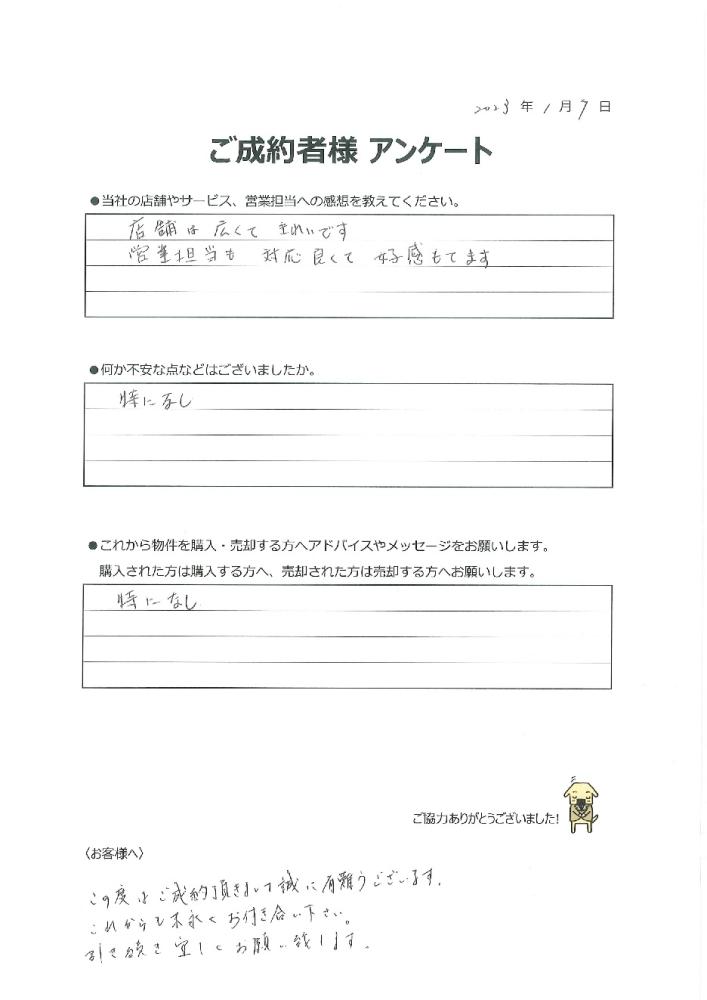 2023 年 1 月 7 日
ご成約者様 アンケート
●当社の店舗やサービス、営業担当への感想を教えてください。
店舗は 広くて きれいです
営業担当も 対応良くて 好感もてます
●何か不安な点などはございましたか。
特になし
●これから物件を購入・売却する方へアドバイスやメッセージをお願いします。
購入された方は購入する方へ、売却された方は売却する方へお願いします。
特になし
ご協力ありがとうございました!
〈お客様へ〉
この度はご成約頂きまして誠に有難うございます。
これからも末永くお付き合い下さい。
引き続き宜しくお願い致します。